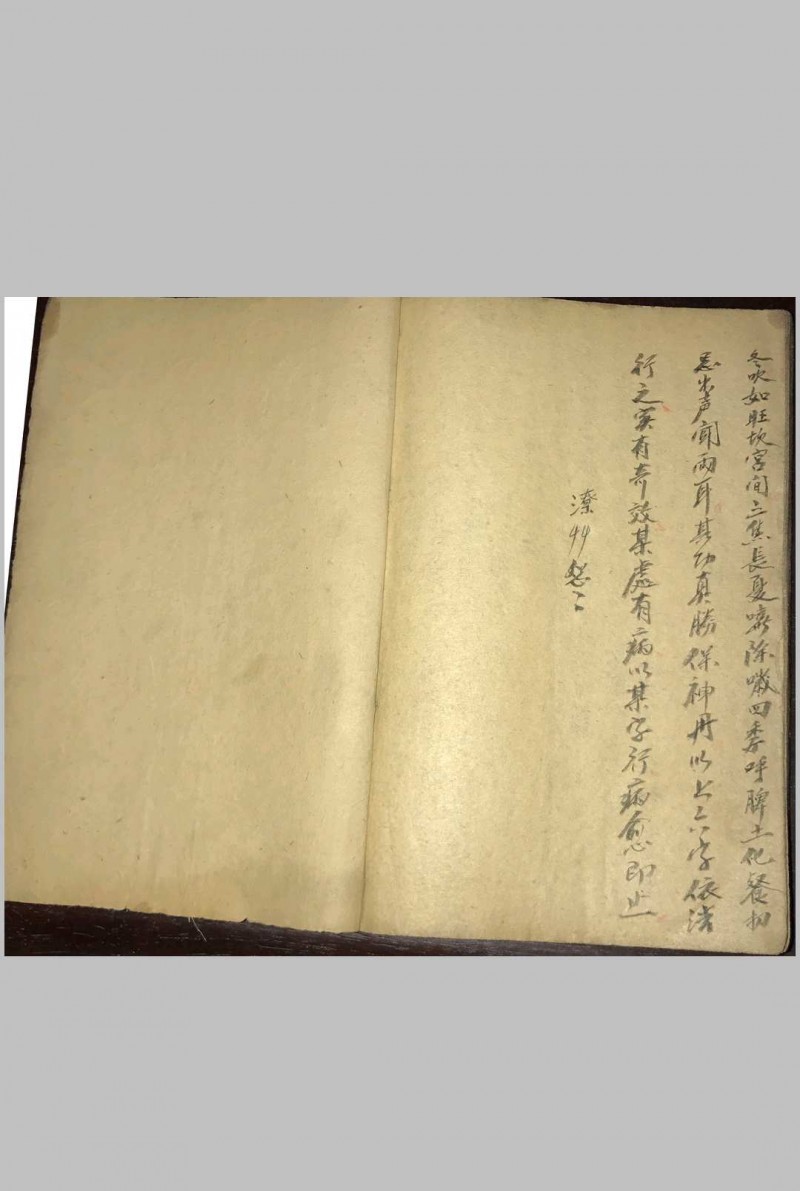 冬吹如旺坎宮间三焦長夏嘻除嘰四季呼脾土化餐切
忌出声闻兩耳其功真勝保神丹以上六字依法
行之实有奇效某處有病以某字行病愈即止